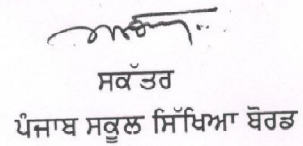 ਸਕੱਤਰ
ਪੰਜਾਬ ਸਕੂਲ ਸਿੱਖਿਆ ਬੋਰਡ